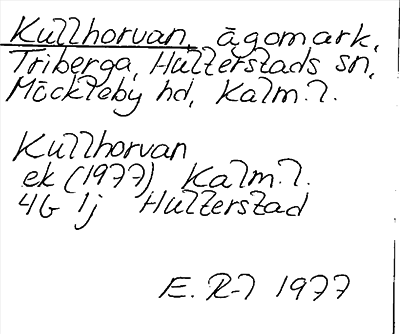 Kullhorvan, ägomark,
Triberga, Hulterstads sn,
Möckleby hd, Kalm.l.
Kullhorvan
ek (1977) Kalm.l.
4G 1j Hulterstad
E. R-l 1977